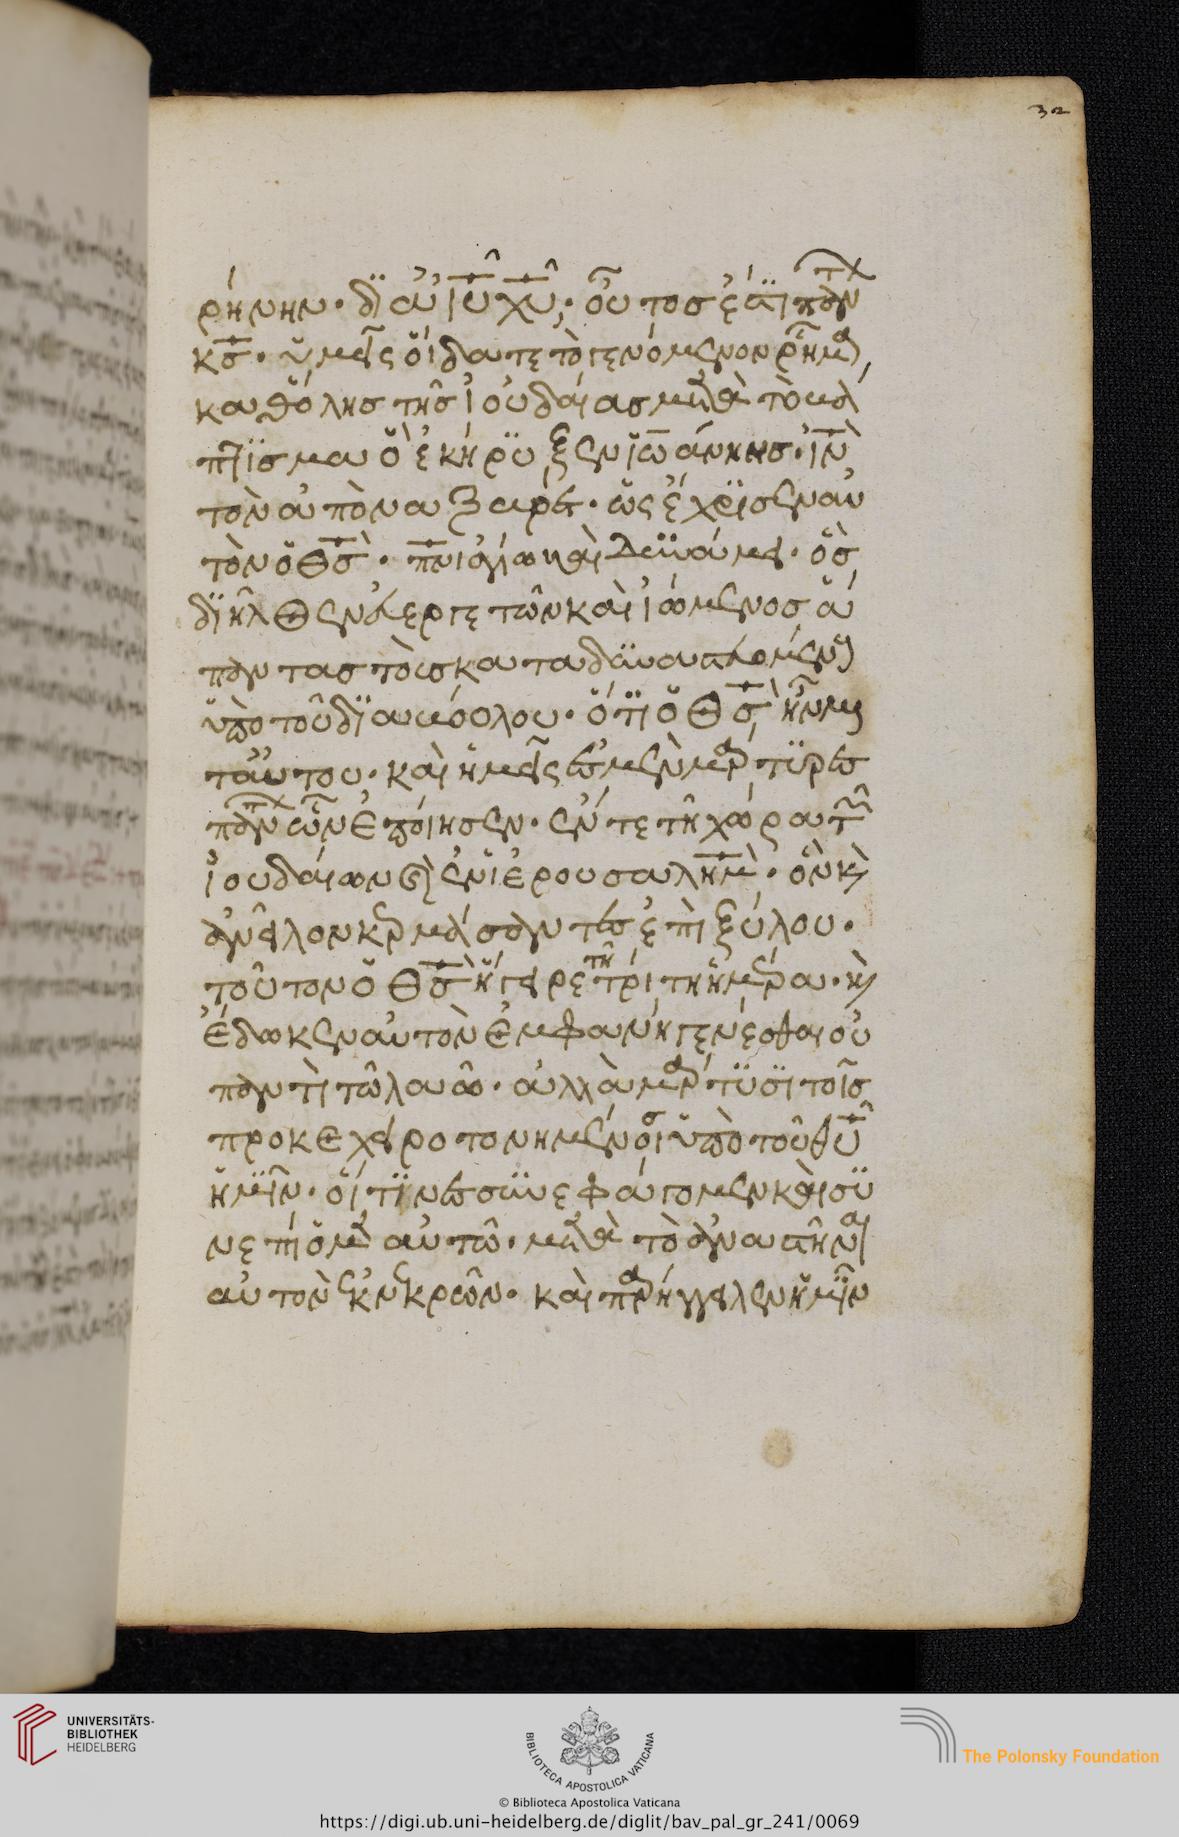 32
ρήνην· δϊ αὐ ἰῦ χῦ· οὗτοσ ἐστϊ πάντ
κς· ὑμεῖς οἴδατε τὸ γενόμενον ῥῆμα,
καθ ὅλησ τῆσ ἰουδαίασ μετὰ τὸ βά
πτϊσμα ὃ ἐκήρϋξεν ἰωάννησ· ἰν
τὸν ἀπὸ ναζαρέτ· ὡς ἔχρϊσεν αὐ
τὸν ὁ θσ· πνι ἁγίω καὶ δϋνάμει· ὃσ
δϊῆλθεν εὐεργετῶν καὶ ἰώμενοσ ἅ
παντασ τοὺσ καταδϋναστευομένους
ὑπὸ τοῦ δϊαβόλου· ὅτϊ ὁ θσ ἦν με
τ αὐτου· καὶ ἡμεῖς ἐσμὲν μάρτϋρεσ
πάντ ὧν ἐποίησεν· ἔν τε τῆ χώρα τῶν
ἰουδαίων καὶ ἐν ἱερουσαλημ· ὃν κὶ
ἀνεῖλον κρεμάσαντεσ ἐπὶ ξύλου·
τοῦτον ὁ θσ ἤγειρε τῆ τρίτη ἡμέρα· κὶ
ἔδωκεν αὐτὸν ἐμφανῆ γενέσθαι οὐ
παντὶ τῶ λαῶ· ἀλλὰ μάρτϋσϊ τοῖσ
προκεχειροτονημένοισ ὑπὸ τοῦ θῦ
ἡμϊν· οἵτϊνεσ σϋνεφάγομεν καὶ σϋ
νεπίομεν αὐτῶ· μετὰ τὸ ἀναστῆναι
αὐτὸν ἐκ νεκρῶν· καὶ παρήγγειλεν ἡμϊν
UNIVERSITÄTS-
BIBLIOTHEK
HEIDELBERG
BIBLIOTECA APOSTOLICA VATICANA
The Polonsky Foundation
© Biblioteca Apostolica Vaticana
https://digi.ub.uni-heidelberg.de/diglit/bav_pal_gr_241/0069